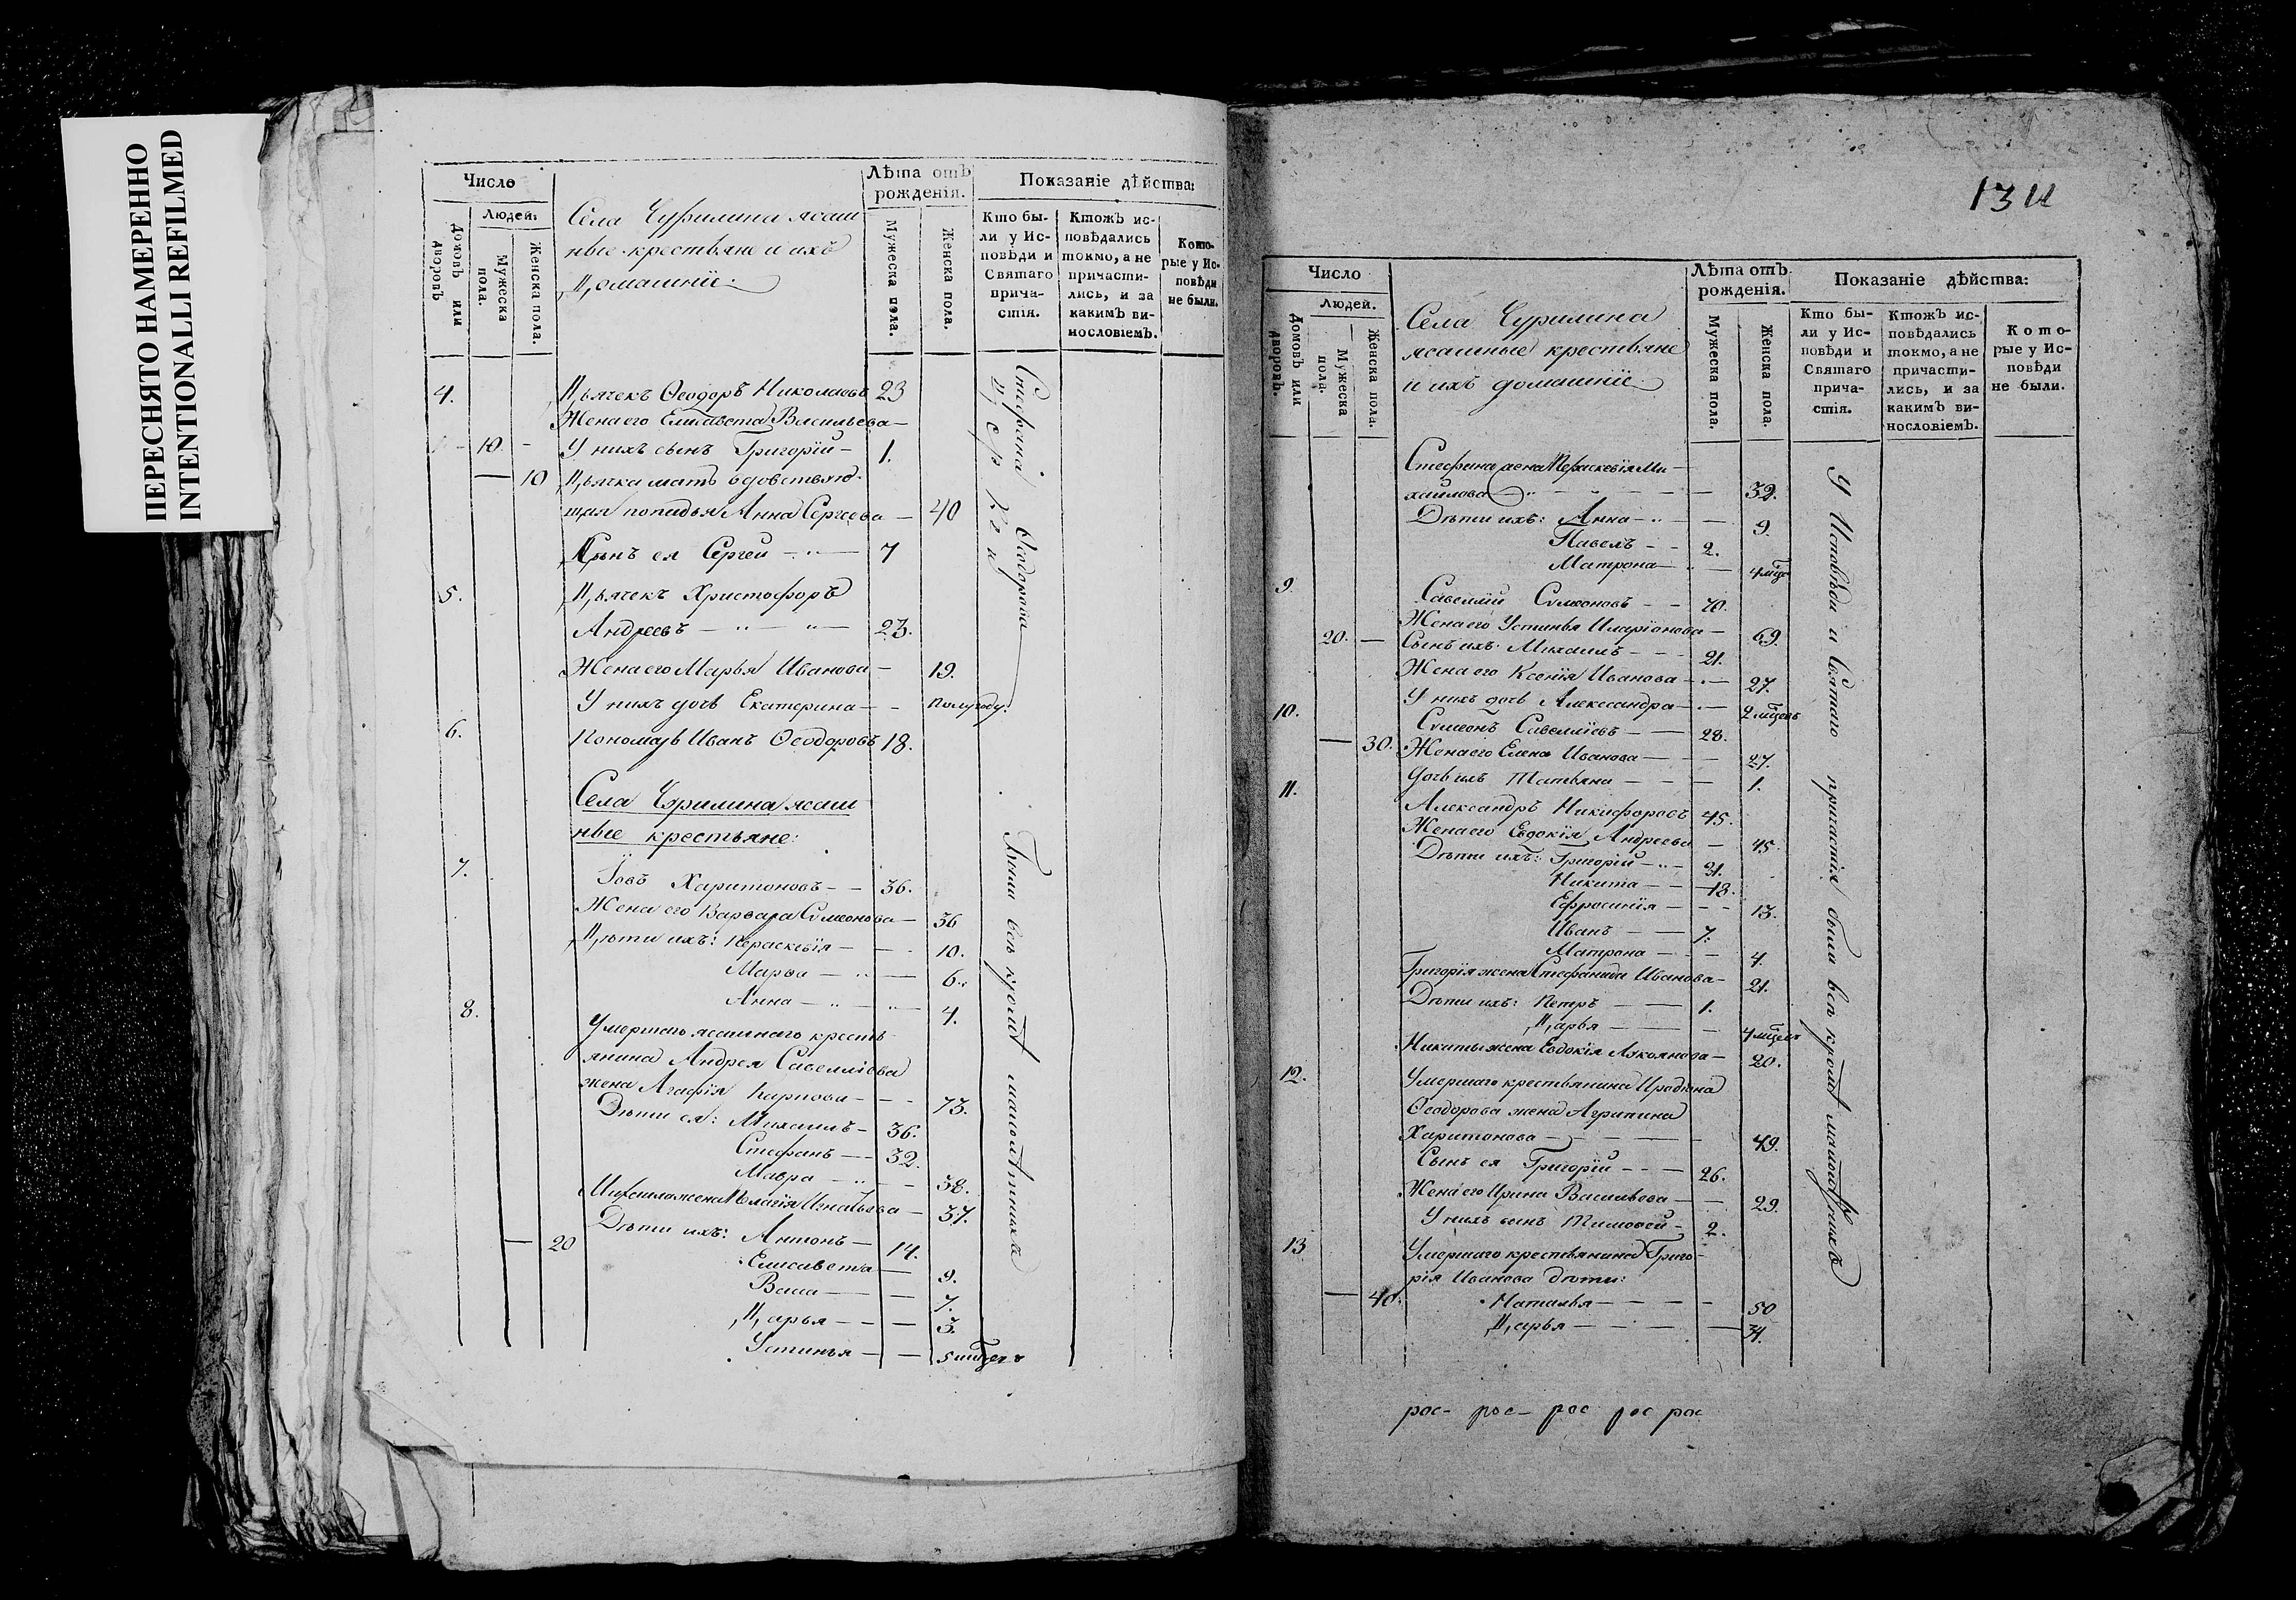 ПЕРЕСНЯТО НАМЕРЕННО
INTENTIONALLI REFILMED
Число
Людей:
Домовъ или дворовъ
Мужеска пола.
Женска пола.
Села Чурилина ясаш
ные крестьяне и ихъ
Домашніе:
Лѣта отъ
рожденія.
Мужеска пола.
Женска пола.
Показаніе дѣйства:
Кто бы-
ли у Ис-
повѣди и
Святаго
прича-
стія.
Ктожъ ис-
повѣдались
токмо, а не
причасти-
лись, и за
какимъ ви-
нословіемъ.
Кото-
рые у Ис-
повѣди
не были.
4. Дьячекъ Ѳеодоръ Николаевъ 23
Жена его Елисавета Васильева —
10 — У нихъ сынъ Григорій — 1.
— 10 Дьячка мать вдовствую-
щая попадья Анна Сергеева — 40
Сынъ ея Сергей — 7
5. Дьячекъ Христофоръ
Андреевъ — 23.
Жена его Марья Иванова — 19.
У нихъ дочь Екатерина — полугоду.
6. Пономарь Иванъ Ѳеодоровъ 18.
Села Чурилина ясаш
ные крестьяне:
7. Іовъ Харитоновъ — 36.
Жена его Варвара Сѵмеонова — 36
Дѣти ихъ: Параскевія — 10.
Марѳа — 6.
Анна — 4.
8. Умершаго ясашнаго кресть
янина Андрея Савелліева
жена Агафія Карпова — 73.
Дѣти ея: Михаилъ — 36.
Стефанъ — 32.
Мавра — 38.
Михаила жена Пелагія Игнатьева — 37.
Дѣти ихъ: Антонъ — 14.
— 20 Елисавета — 9.
Васса — 7.
Дарья — 3.
Устинья — 5 мцевъ
Были всѣ кромѣ малолѣтныхъ
134
Число
Людей.
Домовъ или дворовъ.
Мужеска пола.
Женска пола.
Села Чурилина
ясашные крестьяне
и ихъ домашніе:
Лѣта отъ
рожденія.
Мужеска пола.
Женска пола.
Показаніе дѣйства:
Кто бы-
ли у Ис-
повѣди и
Святаго
прича-
стія.
Ктожъ ис-
повѣдались
токмо, а не
причасти-
лись, и за
какимъ ви-
нословіемъ.
Кото-
рые у Ис-
повѣди
не были.
Стефана жена Параскевія Ми-
хайлова — 32.
Дѣти ихъ: Анна — 9.
Павелъ — 2.
Матрона — 4 мце
9. Савеллій Сѵмеоновъ — 70.
Жена его Устинья Иларіонова — 69.
20. — Сынъ ихъ Михаилъ — 21.
Жена его Ксенія Иванова — 27.
У нихъ дочь Александра — 2 мцевъ
10. Сѵмеонъ Савелліевъ — 28.
— 30. Жена его Елена Иванова — 27.
Дочь ихъ Татьяна — 1.
11. Александръ Никифоровъ 45.
Жена его Евдокія Андреева — 45.
Дѣти ихъ: Григорій — 21.
Никита — 18.
Ефросинія — 13.
Иванъ — 7.
Матрона — 4.
Григорія жена Стефанида Иванова — 21.
Дѣти ихъ: Петръ — 1.
Дарья — 4 мцевъ
Никиты жена Евдокія Лукоянова — 20.
12. Умершаго крестьянина Иродіона
Ѳеодорова жена Агрипина
Харитонова — 49.
Сынъ ея Григорій — 26.
Жена его Ирина Васильева — 29.
У нихъ сынъ Тимоѳей — 2.
13 Умершаго крестьянина Григо-
рія Иванова дѣти:
— 40. Наталья — 50
Дарья — 34.
У Исповѣди и Святаго причастія были всѣ кромѣ малолѣтныхъ
рос- рос- рос рос рос